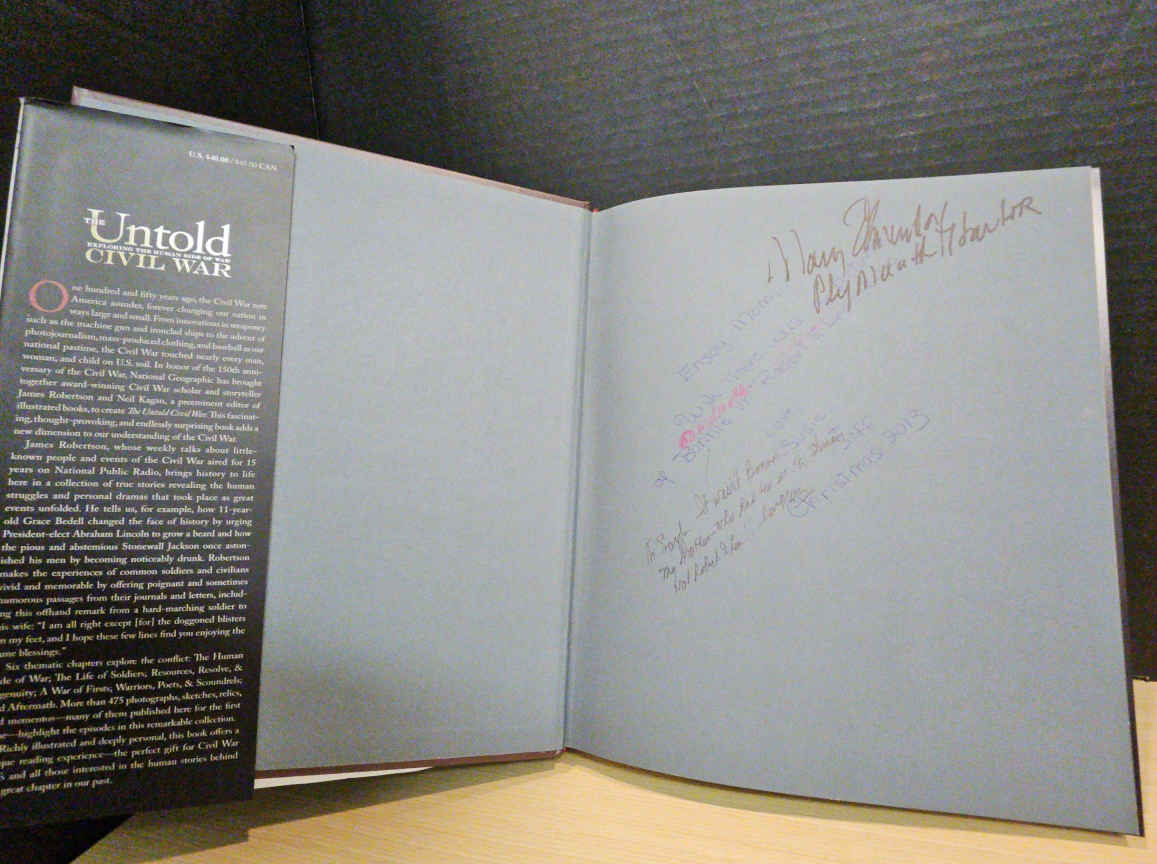 U.S. $40.00 / $45.00 CAN
THE
Untold
EXPLORING THE HUMAN SIDE OF WAR
CIVIL WAR
One hundred and fifty years ago, the Civil War tore
America asunder, forever changing our nation in
ways large and small. From innovations in weaponry
such as the machine gun and ironclad ships to the advent of
photojournalism, mass-produced clothing, and baseball as our
national pastime, the Civil War touched nearly every man,
woman, and child on U.S. soil. In honor of the 150th anni-
versary of the Civil War, National Geographic has brought
together award-winning Civil War scholar and storyteller
James Robertson and Neil Kagan, a preeminent editor of
illustrated books, to create The Untold Civil War. This fascinat-
ing, thought-provoking, and endlessly surprising book adds a
new dimension to our understanding of the Civil War.
James Robertson, whose weekly talks about little-
known people and events of the Civil War aired for 15
years on National Public Radio, brings history to life
here in a collection of true stories revealing the human
struggles and personal dramas that took place as great
events unfolded. He tells us, for example, how 11-year-
old Grace Bedell changed the face of history by urging
President-elect Abraham Lincoln to grow a beard and how
the pious and abstemious Stonewall Jackson once aston-
ished his men by becoming noticeably drunk. Robertson
makes the experiences of common soldiers and civilians
vivid and memorable by offering poignant and sometimes
humorous passages from their journals and letters, includ-
ng this offhand remark from a hard-marching soldier to
is wife: "I am all right except [for] the doggoned blisters
n my feet, and I hope these few lines find you enjoying the
ame blessings."
Six thematic chapters explore the conflict: The Human
de of War; The Life of Soldiers; Resources, Resolve, &
genuity; A War of Firsts; Warriors, Poets, & Scoundrels;
d Aftermath. More than 475 photographs, sketches, relics,
d mementos—many of them published here for the first
—highlight the episodes in this remarkable collection.
Richly illustrated and deeply personal, this book offers a
que reading experience—the perfect gift for Civil War
s and all those interested in the human stories behind
great chapter in our past.
Mary
Plymouth Harbor
Enjoy Mom
Bonnie
Christmas 2013
Not Robert E Lee